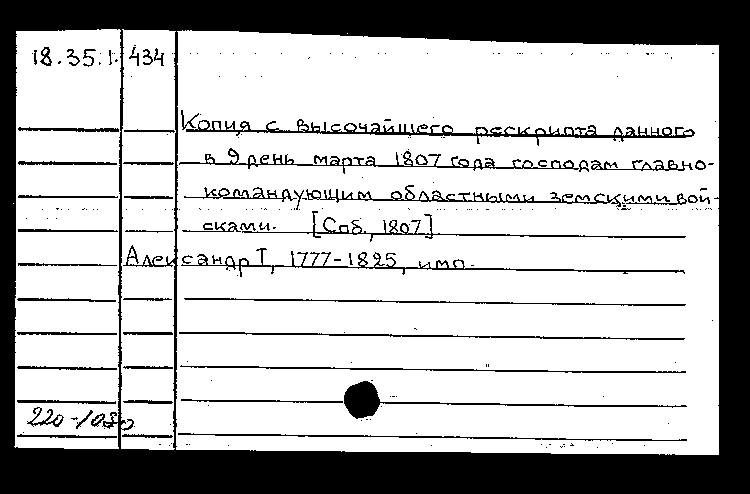 18.35.1. 434
Копия с высочайшего рескрипта данного
в 9 день марта 1807 года господам главно-
командующим областными земскими вой-
сками. [Спб., 1807]
Александр I, 1777-1825, имп.
220-/